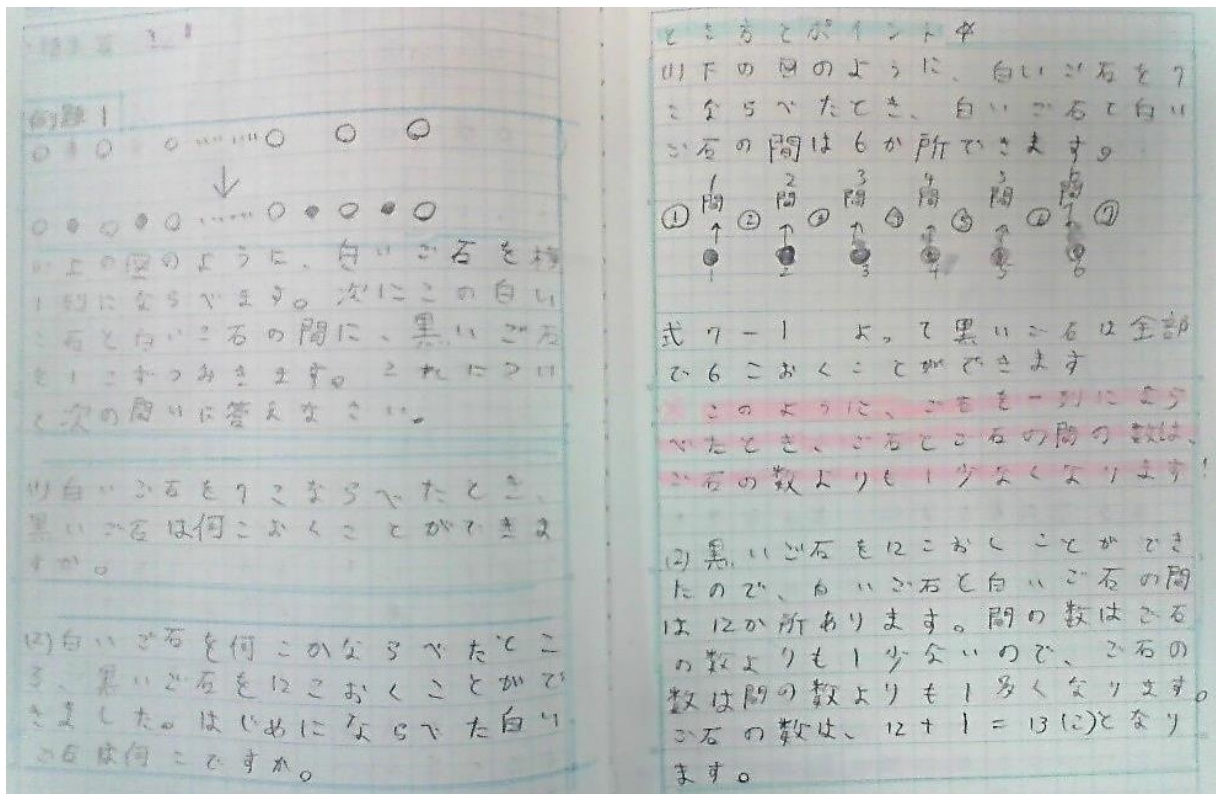 例題1
(1)上の図のように、白いご石を横
1列にならべます。次にこの白い
ご石と白いご石の間に、黒いご石
を1こずつおきます。これについ
て次の問いに答えなさい。
(1)白いご石を7こならべたとき、
黒いご石は何こおくことができま
すか。
(2)白いご石を何こかならべたとこ
ろ、黒いご石を12こおくことがで
きました。はじめにならべた白い
ご石は何こですか。
とき方とポイント
(1)下の図のように、白いご石を7
こならべたとき、白いご石と白い
ご石の間は6か所できます。
1 2 3 4 5 6
① 間 ② 間 ③ 間 ④ 間 ⑤ 間 ⑥ 間 ⑦
1 2 3 4 5 6
式 7-1 よって黒いご石は全部
で6こおくことができます
このように、ご石を一列になら
べたとき、ご石とご石の間の数は、
ご石の数よりも1少なくなります!
(2)黒いご石を12こおくことができ
たので、白いご石と白いご石の間
は12か所あります。間の数はご石
の数よりも1少ないので、ご石の
数は間の数よりも1多くなります。
ご石の数は、12+1=13(こ)となり
ます。